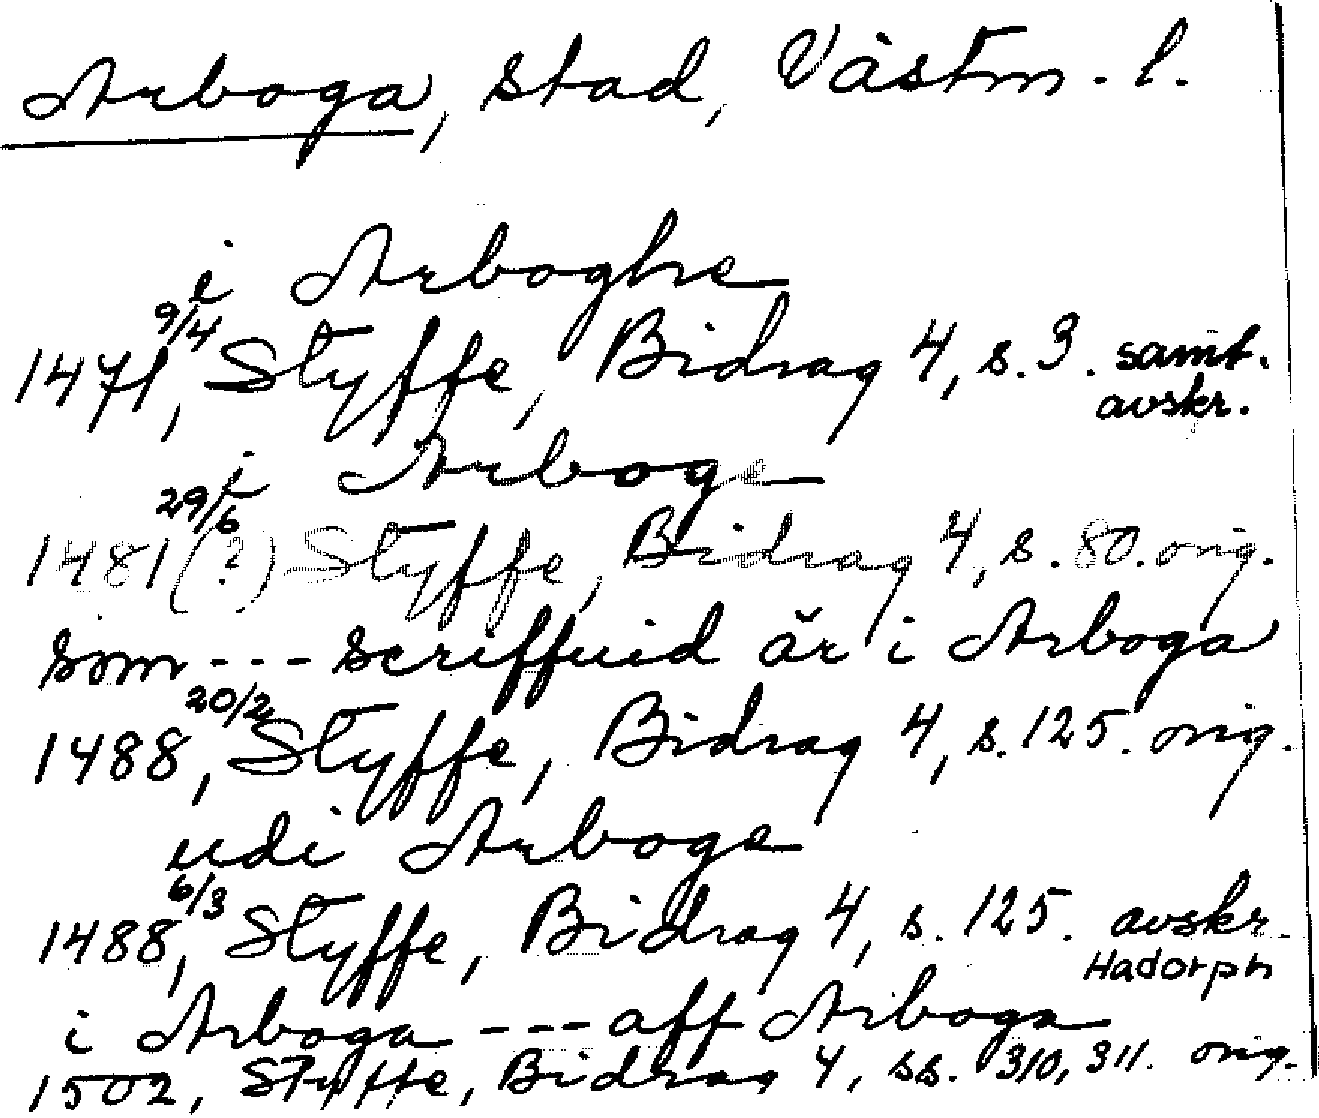 Arboga, stad, Västm. l.
i Arboghe
1471 9/4, Styffe, Bidrag 4, s. 3. samt. avskr.
i Arboge
1481 29/6 (?) Styffe, Bidrag 4, s. 80. orig.
som --- scriffuid är i Arboga
1488 20/2, Styffe, Bidrag 4, s. 125. orig.
udi Arboge
1488 6/3, Styffe, Bidrag 4, s. 125. avskr. Hadorph
i Arboga --- aff Arboga
1502, Styffe, Bidrag 4, ss. 310, 311. orig.